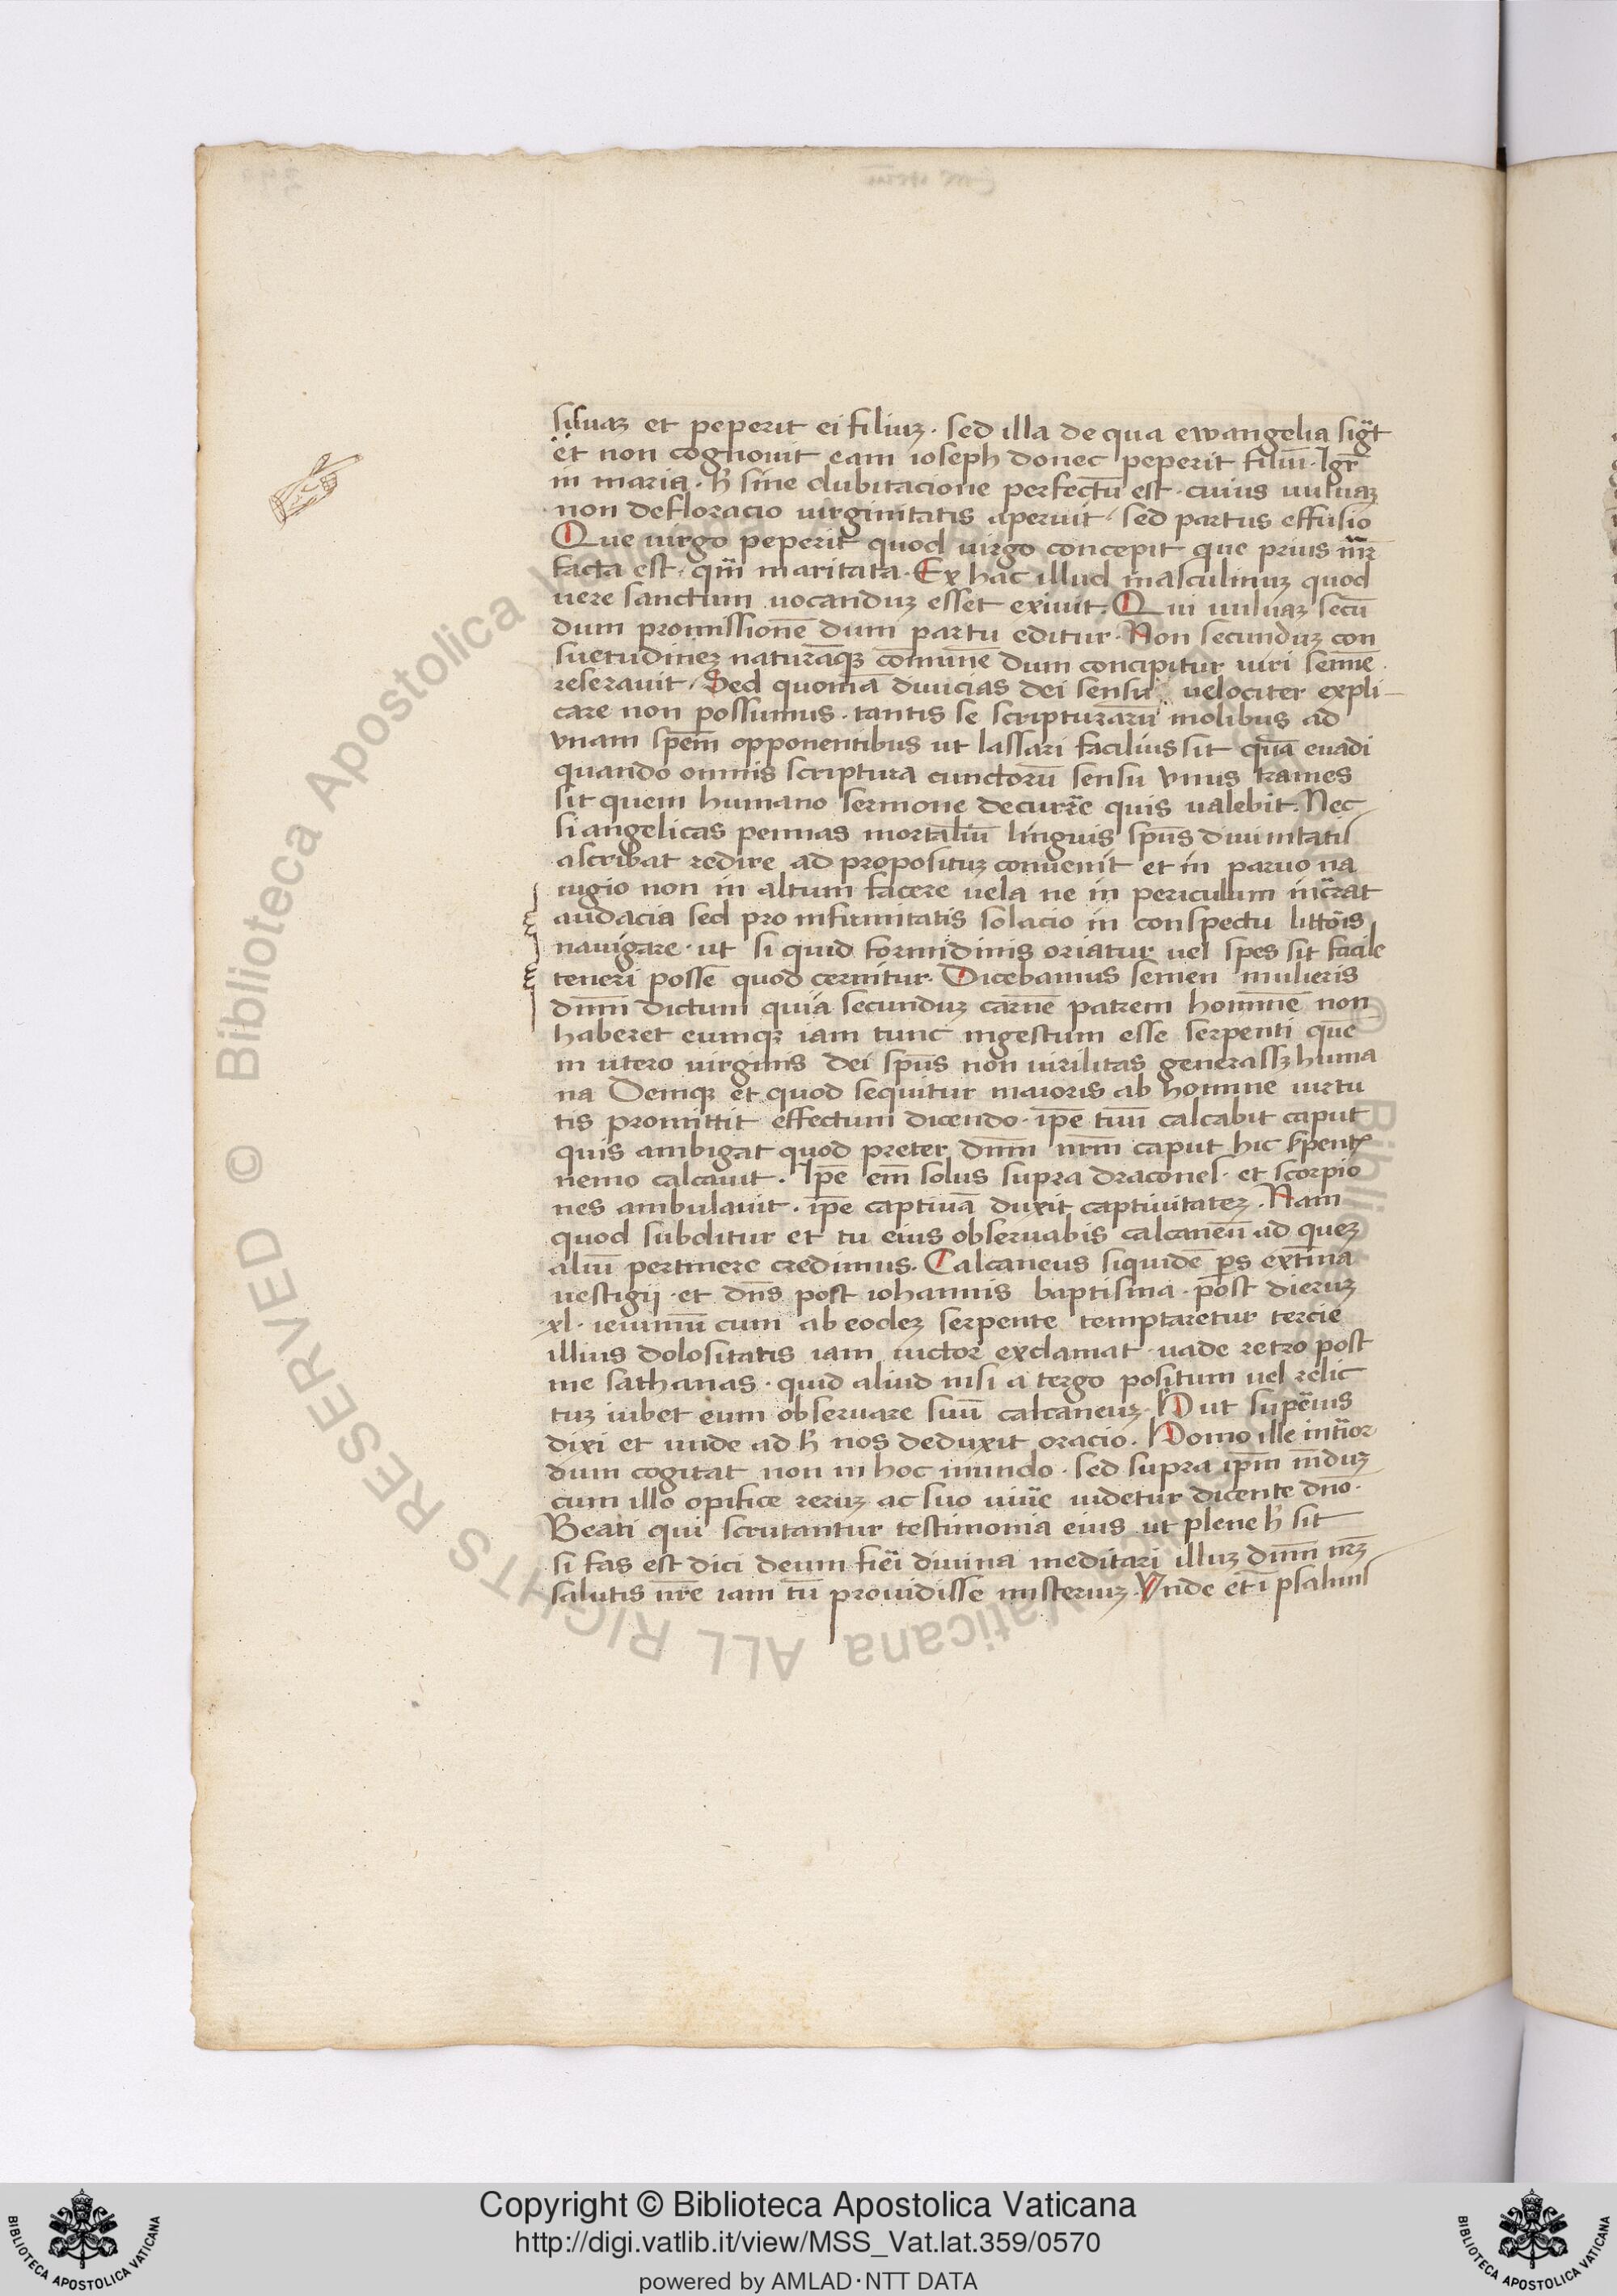 siluaz et peperit ei filiuz · sed illa de qua ewangelia sigt̄
et non cognouit eam ioseph donec peperit filiū · Igr̄
in maria · h̄ sine dubitacione perfectū est · cuius uuluaz
non defloracio uirginitatis aperuit · sed partus effusio
Que uirgo peperit quod uirgo concepit que prius mr̄
facta est · qm̄ maritata · Ex hac illud masculinuz quod
uere sanctum uocanduz esset exiuit. Qui uuluaz secū
dum promissionē dum partu editur · Non secunduz con
suetudinez naturāqz cōmunē dum concipitur uiri semīe
reserauit · Sed quoniā diuicias dei sensu velociter expli-
care non possumus · tantis se scripturarū molibus ad
vnam spem̄ opponentibus ut lassari facilius sit quā euadi
quando omnis scriptura cunctorū sensu vnus trames
sit quem humano sermone decurr̄e quis ualebit. Nec
si angelicas pennas mortaliū linguis spūs diuinitatis
ascribat redire ad propositūz conuenit et in paruo na
uigio non in altum facere uela ne in periculum incrāt
audacia sed pro infirmitatis solacio in conspectu littōis
nauigare · ut si quid formidinis oriatur uel spes sit facile
teneri possē quod cernitur · Dicebamus semen mulieris
dnm̄ dictum quia secunduz carnē patrem hominē non
haberet eumqz iam tunc ingestum esse serpenti que
in utero uirginis dei spūs non uirilitas generassz huma
na Deniqz et quod sequitur maioris ab homine uirtu
tis promittit effectum dicendo · ip̄e tuū calcabit caput
quis ambigat quod preter dnm̄ nrm̄ caput hic spent̄
nemo calcauit · Ip̄e em̄ solus supra dracones · et scorpio
nes ambulauit · ip̄e captiuā duxit captiuitatez · Nam
quod subditur et tu eius obseruabis calcaneū ad quez
aliū pertinere credimus. Calcaneus siquidē ps extīna
uestigij · et dn̄s post iohannis baptisma · post dieruz
·xl· ieiuniū cum ab eodez serpente temptaretur tercie
illius dolositatis iam uictor exclamat · uade retro post
me sathanas · quid aliud nisi a tergo positum uel relic
tuz iubet eum obseruare suū calcaneuz · H ut supēius
dixi et unde ad h̄ nos deduxit oracio. Homo ille intīor
dum cogitat non in hoc mundo · sed supra ipm̄ mūduz
cum illo opifice reruz ac suo uiuē uidetur dicente dn̄o ·
Beati qui scrutantur testimonia eius ut plene h̄ sit
si fas est dici deum fiēi diuina meditari illuz dnm̄ nrz
salutis nr̄e iam tū prouidisse misteriuz · Vnde et ī psalmis
Copyright © Biblioteca Apostolica Vaticana
http://digi.vatlib.it/view/MSS_Vat.lat.359/0570
powered by AMLAD·NTT DATA
BIBLIOTECA APOSTOLICA VATICANA
BIBLIOTECA APOSTOLICA VATICANA